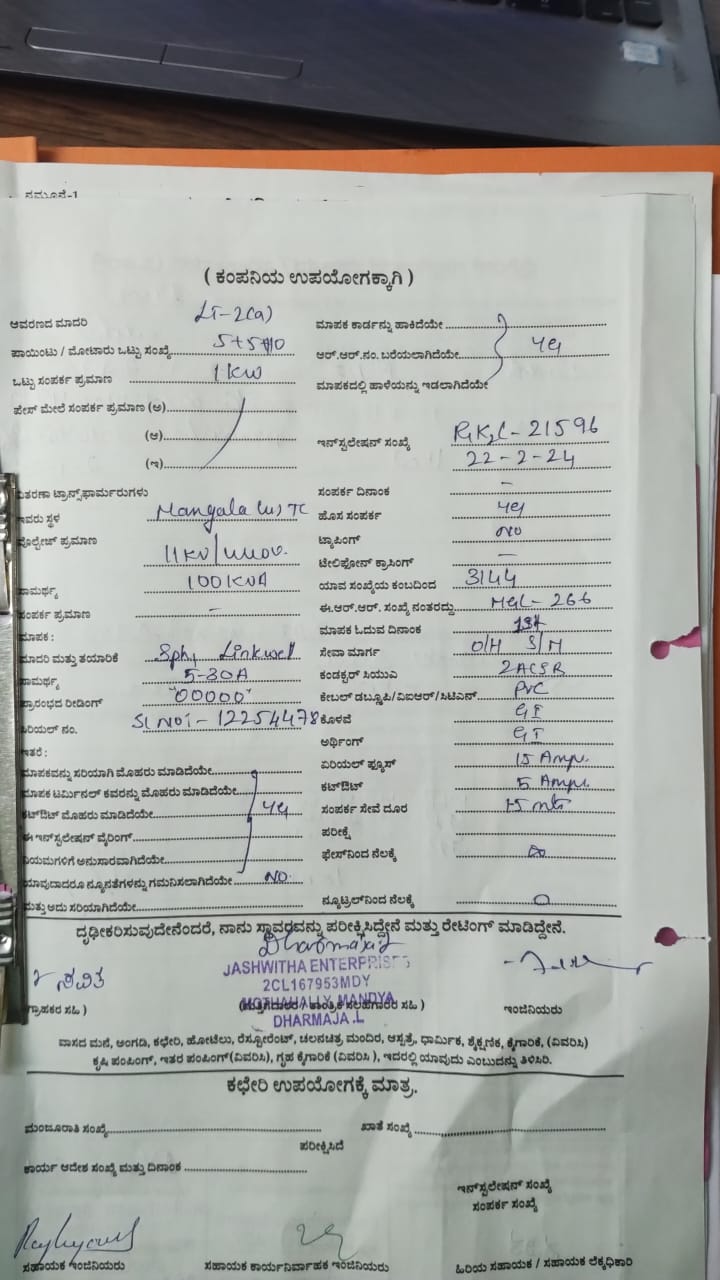 ನಮೂನೆ-1
( ಕಂಪನಿಯ ಉಪಯೋಗಕ್ಕಾಗಿ )
ಆವರಣದ ಮಾದರಿ LT-2(a) ಮಾಪಕ ಕಾರ್ಡನ್ನು ಹಾಕಿದೆಯೇ
ಪಾಯಿಂಟು / ಮೋಟಾರು ಒಟ್ಟು ಸಂಖ್ಯೆ ಆರ್.ಆರ್.ನಂ. ಬರೆಯಲಾಗಿದೆಯೇ yes
ಒಟ್ಟು ಸಂಪರ್ಕ ಪ್ರಮಾಣ 1 KW ಮಾಪಕದಲ್ಲಿ ಹಾಳೆಯನ್ನು ಇಡಲಾಗಿದೆಯೇ
ಫೇಸ್ ಮೇಲೆ ಸಂಪರ್ಕ ಪ್ರಮಾಣ (ಅ)
(ಆ) ಇನ್‌ಸ್ಟಲೇಷನ್ ಸಂಖ್ಯೆ 21596
(ಇ) 22-2-24
ವಿತರಣಾ ಟ್ರಾನ್ಸ್‌ಫಾರ್ಮರುಗಳು ಸಂಪರ್ಕ ದಿನಾಂಕ -
ಇವರು ಸ್ಥಳ Mangala TC ಹೊಸ ಸಂಪರ್ಕ yes
ವೋಲ್ಟೇಜ್ ಪ್ರಮಾಣ 11KV/440v. ಟ್ಯಾಪಿಂಗ್ NO
ಟೆಲಿಫೋನ್ ಕ್ರಾಸಿಂಗ್ -
ಸಾಮರ್ಥ್ಯ 100KVA ಯಾವ ಸಂಖ್ಯೆಯ ಕಂಬದಿಂದ 3144
ಸಂಪರ್ಕ ಪ್ರಮಾಣ - ಈ.ಆರ್.ಆರ್. ಸಂಖ್ಯೆ ನಂತರದ್ದು MGL-266
ಮಾಪಕ : ಮಾಪಕ ಓದುವ ದಿನಾಂಕ 1st
ಮಾದರಿ ಮತ್ತು ತಯಾರಿಕೆ Sph, Linkwel ಸೇವಾ ಮಾರ್ಗ O/H S/M
ಸಾಮರ್ಥ್ಯ 5-30A ಕಂಡಕ್ಟರ್ ಸಿಯುಎ 2ACSR
ಪ್ರಾರಂಭದ ರೀಡಿಂಗ್ "00000" ಕೇಬಲ್ ಡಬ್ಲ್ಯೂಪಿ/ವಿಐಆರ್/ಸಿಟಿಎಸ್ PVC
ಸಿರಿಯಲ್ ನಂ. Sl No:- 12254478 ಕೊಳವೆ GI
ಇತರೆ : ಅರ್ಥಿಂಗ್ GI
ಮಾಪಕವನ್ನು ಸರಿಯಾಗಿ ಮೊಹರು ಮಾಡಿದೆಯೇ ಏರಿಯಲ್ ಫ್ಯೂಸ್ 15 Amps.
ಮಾಪಕ ಟರ್ಮಿನಲ್ ಕವರನ್ನು ಮೊಹರು ಮಾಡಿದೆಯೇ ಕಟ್‌ಔಟ್ 5 Amps.
ಕಟ್‌ಔಟ್ ಮೊಹರು ಮಾಡಿದೆಯೇ yes ಸಂಪರ್ಕ ಸೇವೆ ದೂರ 15 mts
ಈ ಇನ್‌ಸ್ಟಲೇಷನ್ ವೈರಿಂಗ್ ಪರೀಕ್ಷೆ
ನಿಯಮಗಳಿಗೆ ಅನುಸಾರವಾಗಿದೆಯೇ ಫೇಸ್‌ನಿಂದ ನೆಲಕ್ಕೆ ∞
ಯಾವುದಾದರೂ ನ್ಯೂನತೆಗಳನ್ನು ಗಮನಿಸಲಾಗಿದೆಯೇ NO.
ಮತ್ತು ಅದು ಸರಿಯಾಗಿದೆಯೇ ನ್ಯೂಟ್ರಲ್‌ನಿಂದ ನೆಲಕ್ಕೆ 0
ದೃಢೀಕರಿಸುವುದೇನೆಂದರೆ, ನಾನು ಸ್ಥಾವರವನ್ನು ಪರೀಕ್ಷಿಸಿದ್ದೇನೆ ಮತ್ತು ರೇಟಿಂಗ್ ಮಾಡಿದ್ದೇನೆ.
Dharmaraj
JASHWITHA ENTERPRISES
ಸವಿತ 2CL167953MDY
MOTHAHALLY, MANDYA
ಗ್ರಾಹಕರ ಸಹಿ ) (ಗುತ್ತಿಗೆದಾರರ / ತಾಂತ್ರಿಕ ಸಲಹೆಗಾರರ ಸಹಿ ) ಇಂಜಿನಿಯರು
DHARMAJA .L
ವಾಸದ ಮನೆ, ಅಂಗಡಿ, ಕಛೇರಿ, ಹೋಟೆಲು, ರೆಸ್ಟೋರೆಂಟ್, ಚಲನಚಿತ್ರ ಮಂದಿರ, ಆಸ್ಪತ್ರೆ, ಧಾರ್ಮಿಕ, ಶೈಕ್ಷಣಿಕ, ಕೈಗಾರಿಕೆ, (ವಿವರಿಸಿ)
ಕೃಷಿ ಪಂಪಿಂಗ್, ಇತರ ಪಂಪಿಂಗ್(ವಿವರಿಸಿ), ಗೃಹ ಕೈಗಾರಿಕೆ (ವಿವರಿಸಿ ), ಇದರಲ್ಲಿ ಯಾವುದು ಎಂಬುದನ್ನು ತಿಳಿಸಿರಿ.
ಕಛೇರಿ ಉಪಯೋಗಕ್ಕೆ ಮಾತ್ರ.
ಮಂಜೂರಾತಿ ಸಂಖ್ಯೆ ಖಾತೆ ಸಂಖ್ಯೆ
ಪರೀಕ್ಷಿಸಿದೆ
ಕಾರ್ಯ ಆದೇಶ ಸಂಖ್ಯೆ ಮತ್ತು ದಿನಾಂಕ
ಇನ್‌ಸ್ಟಲೇಷನ್ ಸಂಖ್ಯೆ
ಸಂಪರ್ಕ ಸಂಖ್ಯೆ
ಸಹಾಯಕ ಇಂಜಿನಿಯರು ಸಹಾಯಕ ಕಾರ್ಯನಿರ್ವಾಹಕ ಇಂಜಿನಿಯರು ಹಿರಿಯ ಸಹಾಯಕ / ಸಹಾಯಕ ಲೆಕ್ಕಾಧಿಕಾರಿ